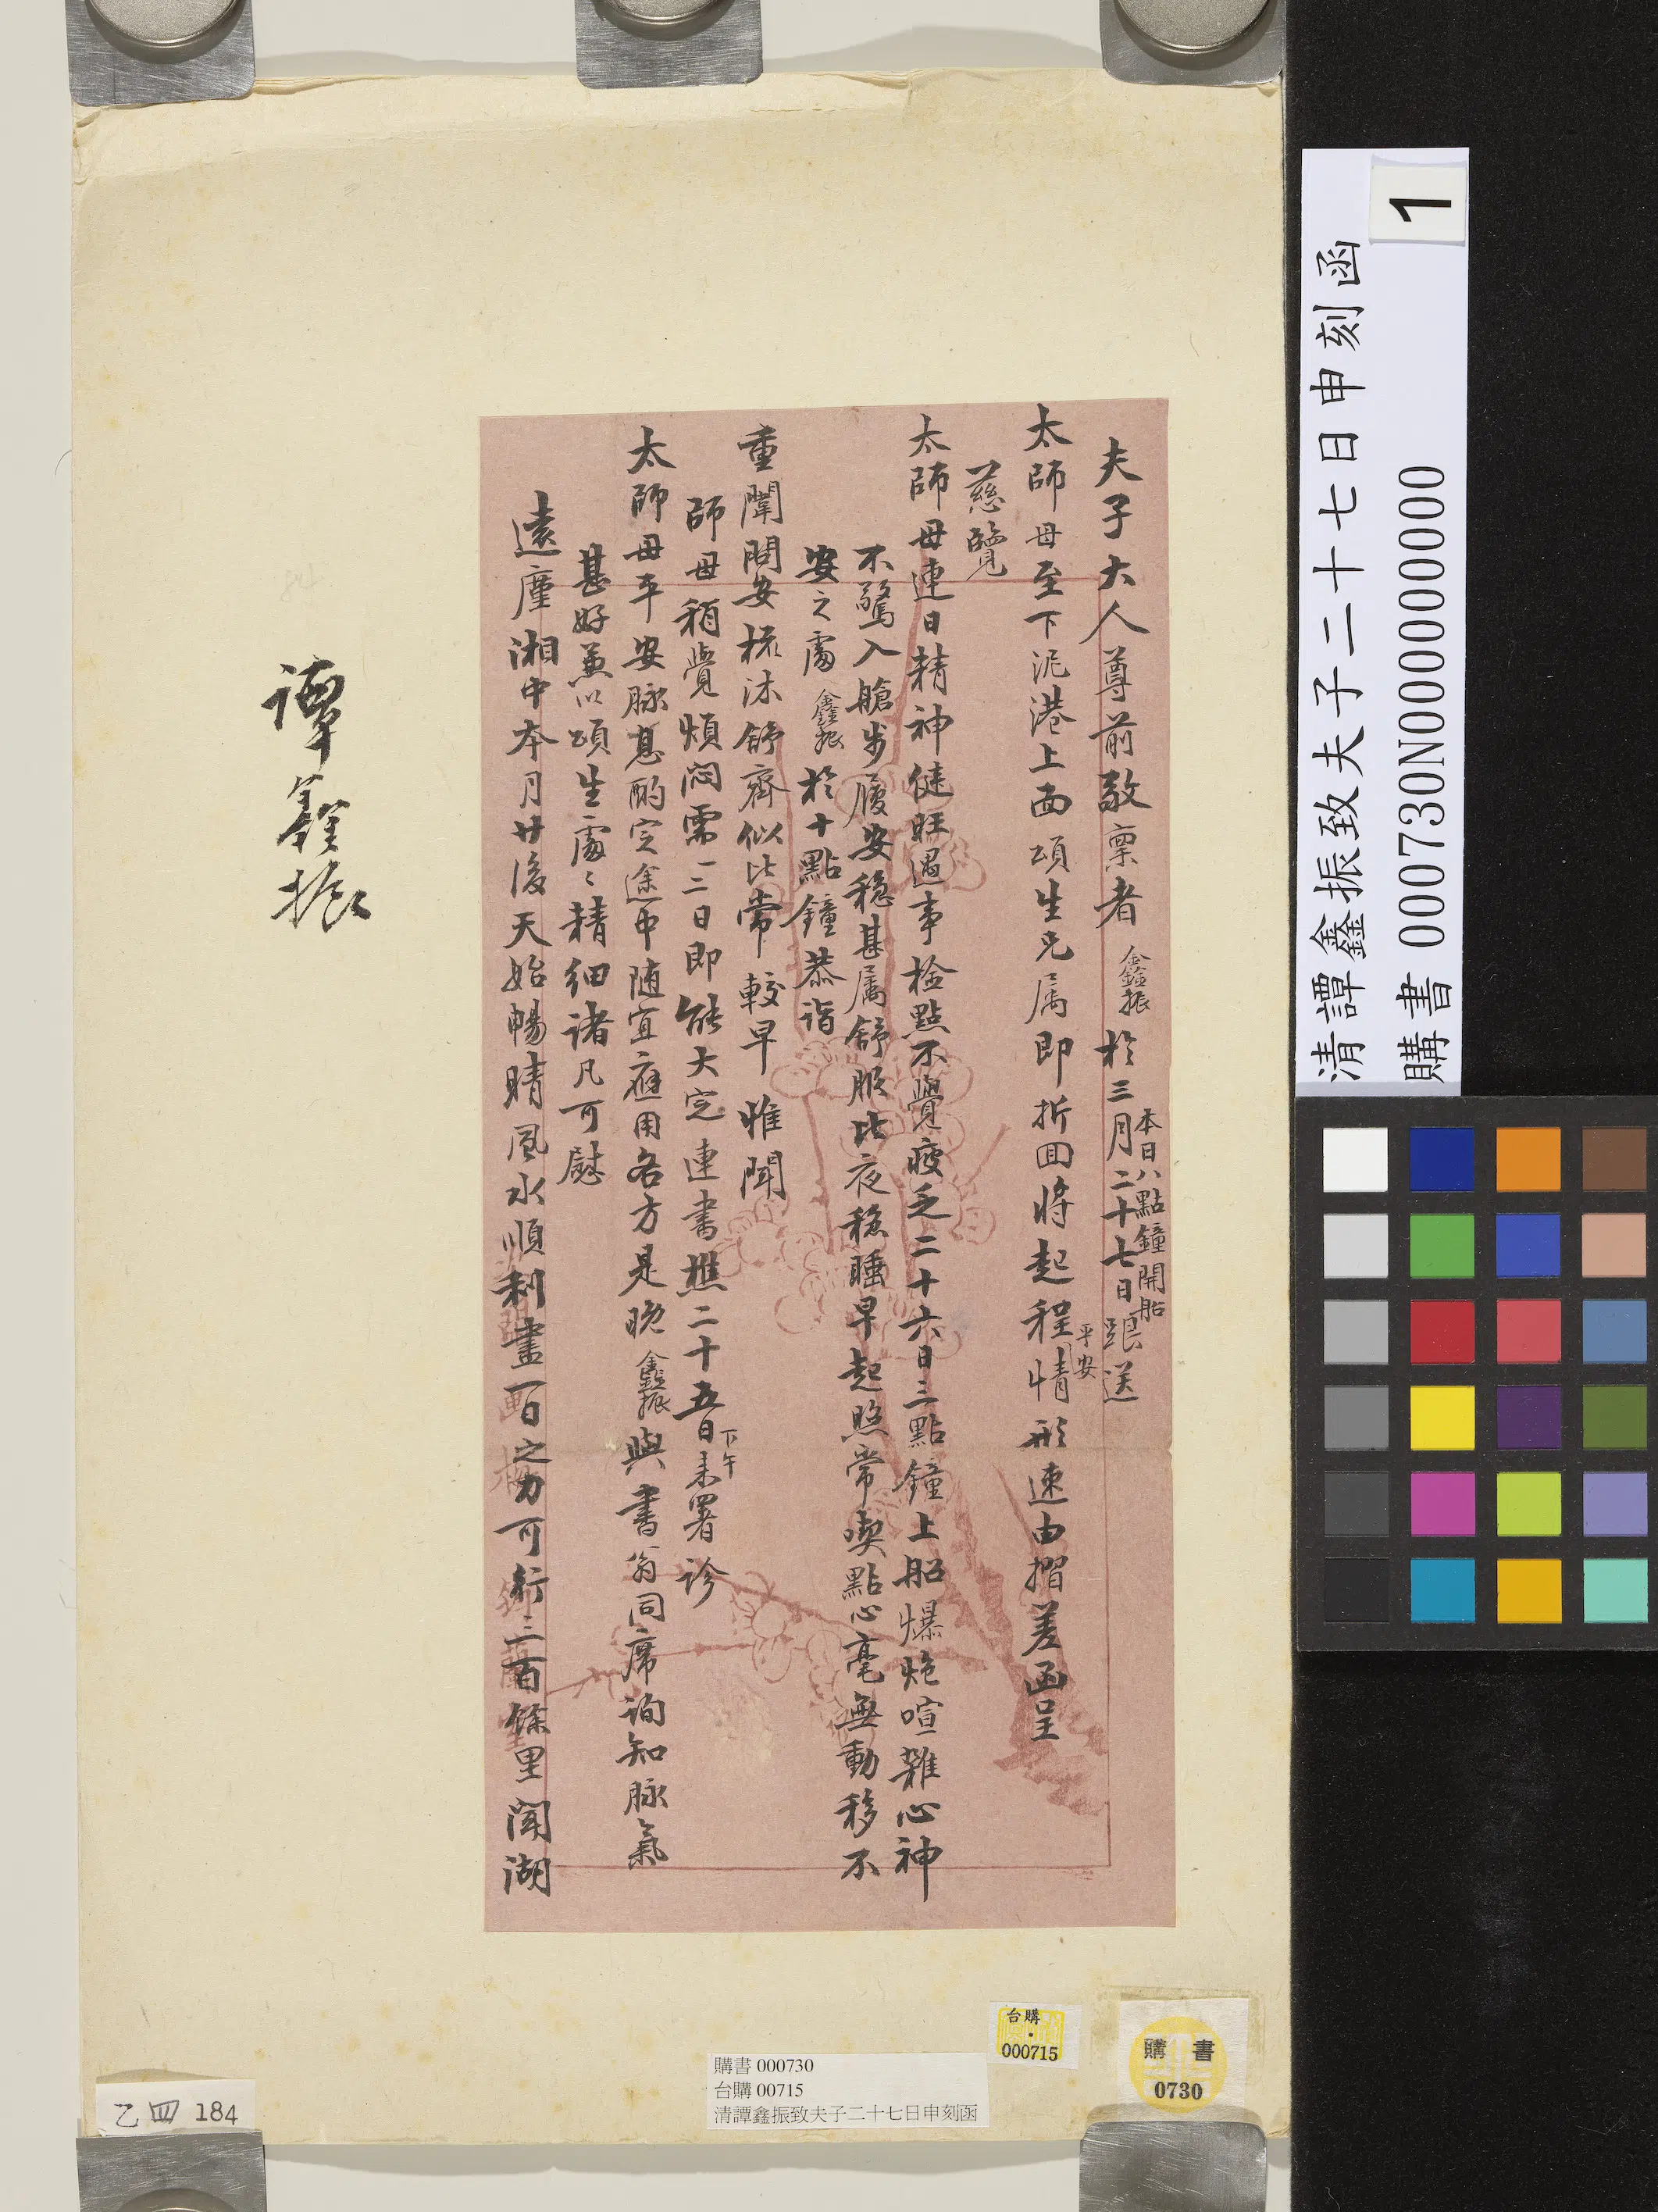 夫子大人尊前敬稟者鑫振於三月二十七日踉送
本日八點鐘開船
太師母至下泥港上面頌生兄属即折回將起程情形速由摺差函呈
平安
慈覽
太師母連日精神健旺遇事檢點不覺疲乏二十六日三點鐘上船爆炮喧雜心神
不驚入艙步履安穩甚属舒服比夜穩睡早起照常喫點心毫無動移不
安之處鑫振於十點鐘恭詣
重闈問安梳沐舒齊似比常較早惟聞
師母稍覺煩悶需二三日即能大定連書樵二十五日未署診
下午
太師母平安脉甚酌定途中随宜應用各方是晚鑫振與書翁同席詢知脉氣
甚好兼以頌生處處精細諸凡可慰
遠廑湘中本月廿後天始暢晴風水順利盡一日之力可行三百餘里聞湖
譚鑫振
清譚鑫振致夫子二十七日申刻函
1
購書 000730N000000000
台購
000715
購書
0730
購書 000730
台購 00715
清譚鑫振致夫子二十七日申刻函
乙四 184